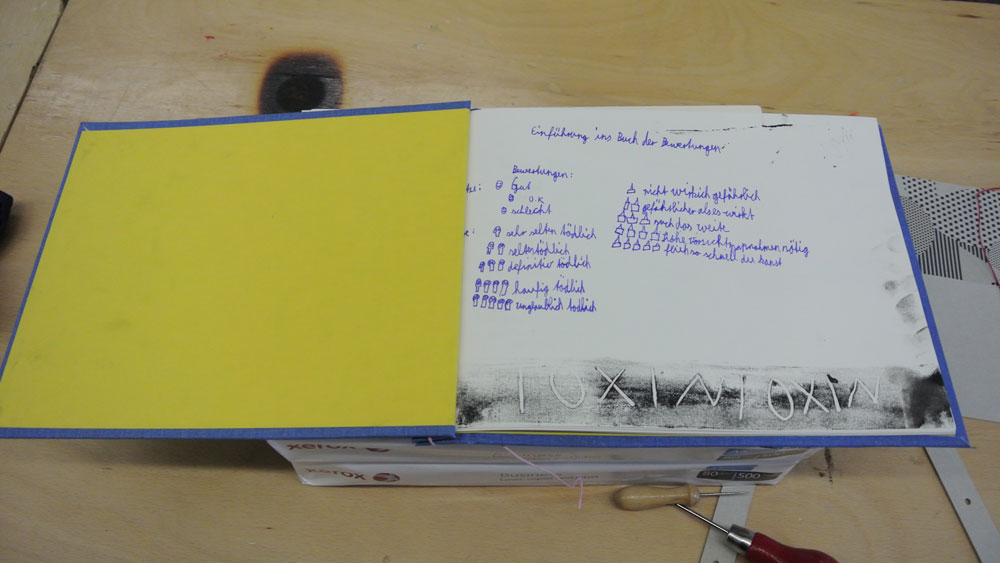 Einführung ins Buch der Bewertungen
Bewertungen:
gut
O.K
schlecht
sehr selten tödlich
selten tödlich
definitiv tödlich
haufig tödlich
unglaublich tödlich
nicht wirklich gefährlich
gefährlicher als es wirkt
such das weite
nötig
so schnell du kanst
TOXIN TOXIN
xerox
xerox
Business
80
500